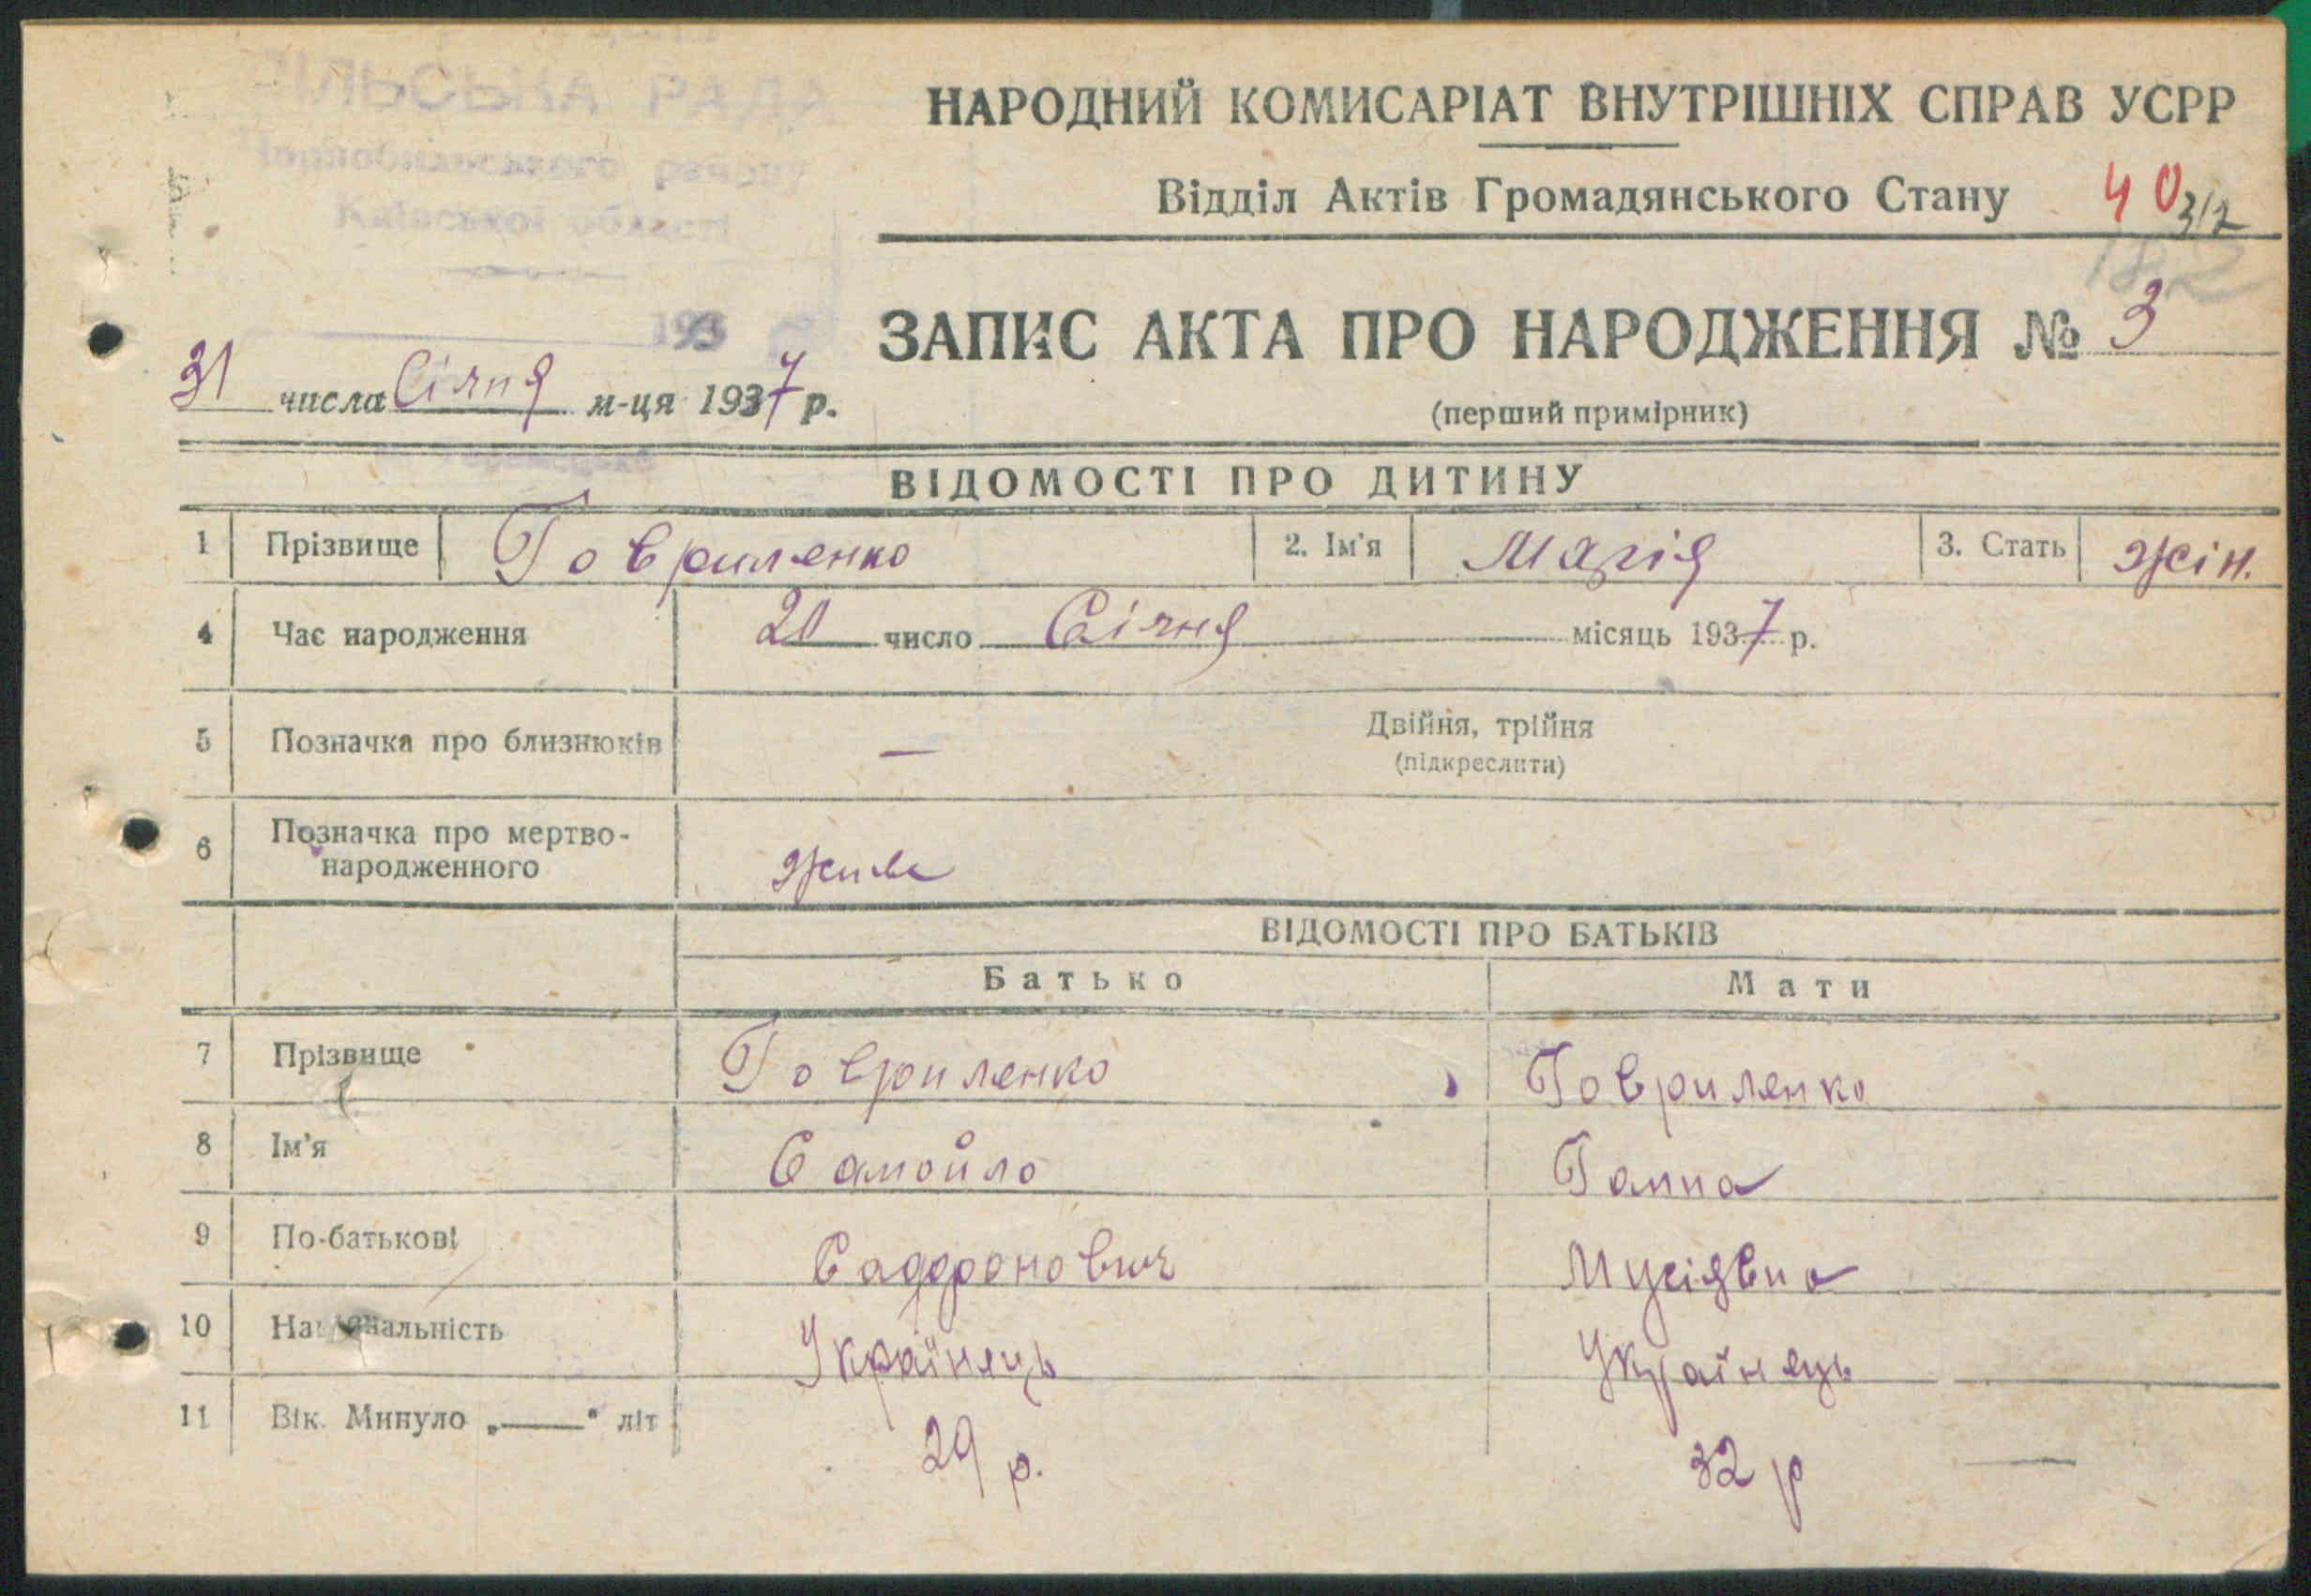 СІЛЬСЬКА РАДА
Чорнобильського району
Київської області
193
НАРОДНИЙ КОМИСАРІАТ ВНУТРІШНІХ СПРАВ УСРР
Відділ Актів Громадянського Стану 40 312
182
ЗАПИС АКТА ПРО НАРОДЖЕННЯ № 3
31 числа Січня м-ця 1937 р.
(перший примірник)
ВІДОМОСТІ ПРО ДИТИНУ
1 Прізвище Говриленко 2. Ім'я Марія 3. Стать жін.
4 Час народження 20 число Січня місяць 1937 р.
5 Позначка про близнюків — Двійня, трійня
(підкреслити)
6 Позначка про мертво-
народженного живе
ВІДОМОСТІ ПРО БАТЬКІВ
Батько Мати
7 Прізвище Говриленко Говриленко
8 Ім'я Самойло Ганна
9 По-батькові Садронович Мусіявна
10 Національність Українець Українець
11 Вік. Минуло „——" літ 29 р. 32 р